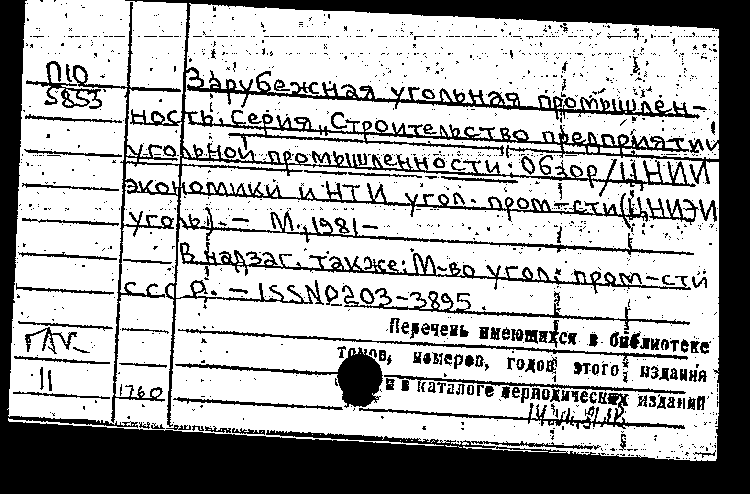 П10
5853
Зарубежная угольная промышлен-
ность. Серия „Строительство предприятий
угольной промышленности": Обзор/ЦНИИ
экономики и НТИ угол. пром-сти(ЦНИЭИ
уголь). - М., 1981-
В надзаг. также: М-во угол. пром-сти
СССР. - ISSN0203-3895.
Перечень имеющихся в библиотеке
томов, номеров, годов этого издания
и в каталоге периодических изданий
11
1760